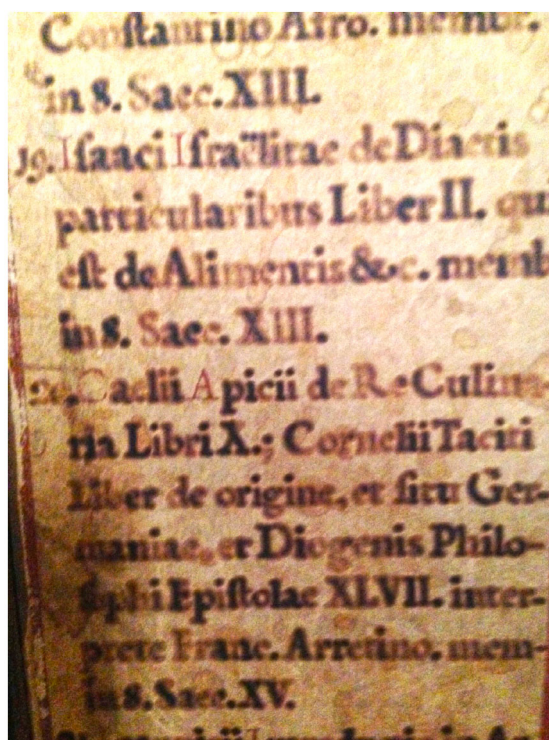 Constantino Afro. membr.
in 8. Saec. XIII.
19. Isaaci Israëlitae de Diaetis
particularibus Liber II. qui
est de Alimentis &c. memb
in 8. Saec. XIII.
20. Caelii Apicii de Re Culina-
ria Libri X.; Cornelii Taciti
Liber de origine, et situ Ger-
maniae, et Diogenis Philo-
sophi Epistolae XLVII. inter-
prete Franc. Arretino. mem-
in 8. Saec. XV.